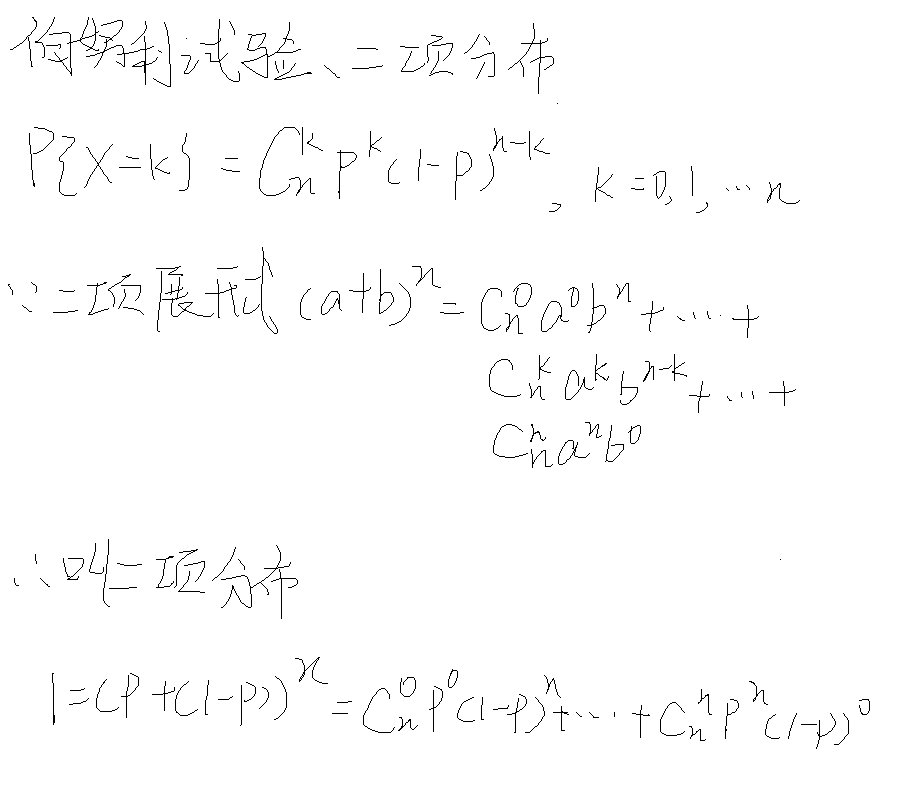 伯努利试验、二项分布
P{X=k} = C_n^k p^k (1-p)^{n-k}, k=0,1,…n
∵二项展开式 (a+b)^n = C_n^0 a^0 b^n + …… +
C_n^k a^k b^{n-k} + … +
C_n^n a^n b^0
∴叫二项分布
1=(p+(1-p))^n = C_n^0 p^0 (1-p)^n + …… + C_n^n p^n (1-p)^0